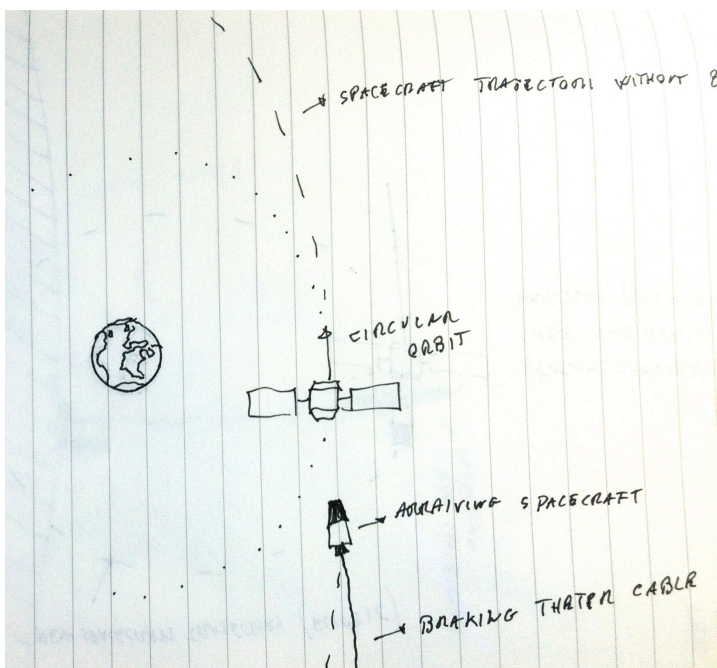 SPACECRAFT TRAJECTORI WITHOUT
CIRCULAR
ORBIT
ARRAIVING SPACECRAFT
BRAKING THATER CABLR